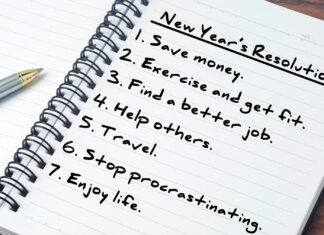 New Year's Resolutio
1. Save money.
2. Exercise and get fit.
3. Find a better job.
4. Help others.
5. Travel.
6. Stop procrastinating.
7. Enjoy life.